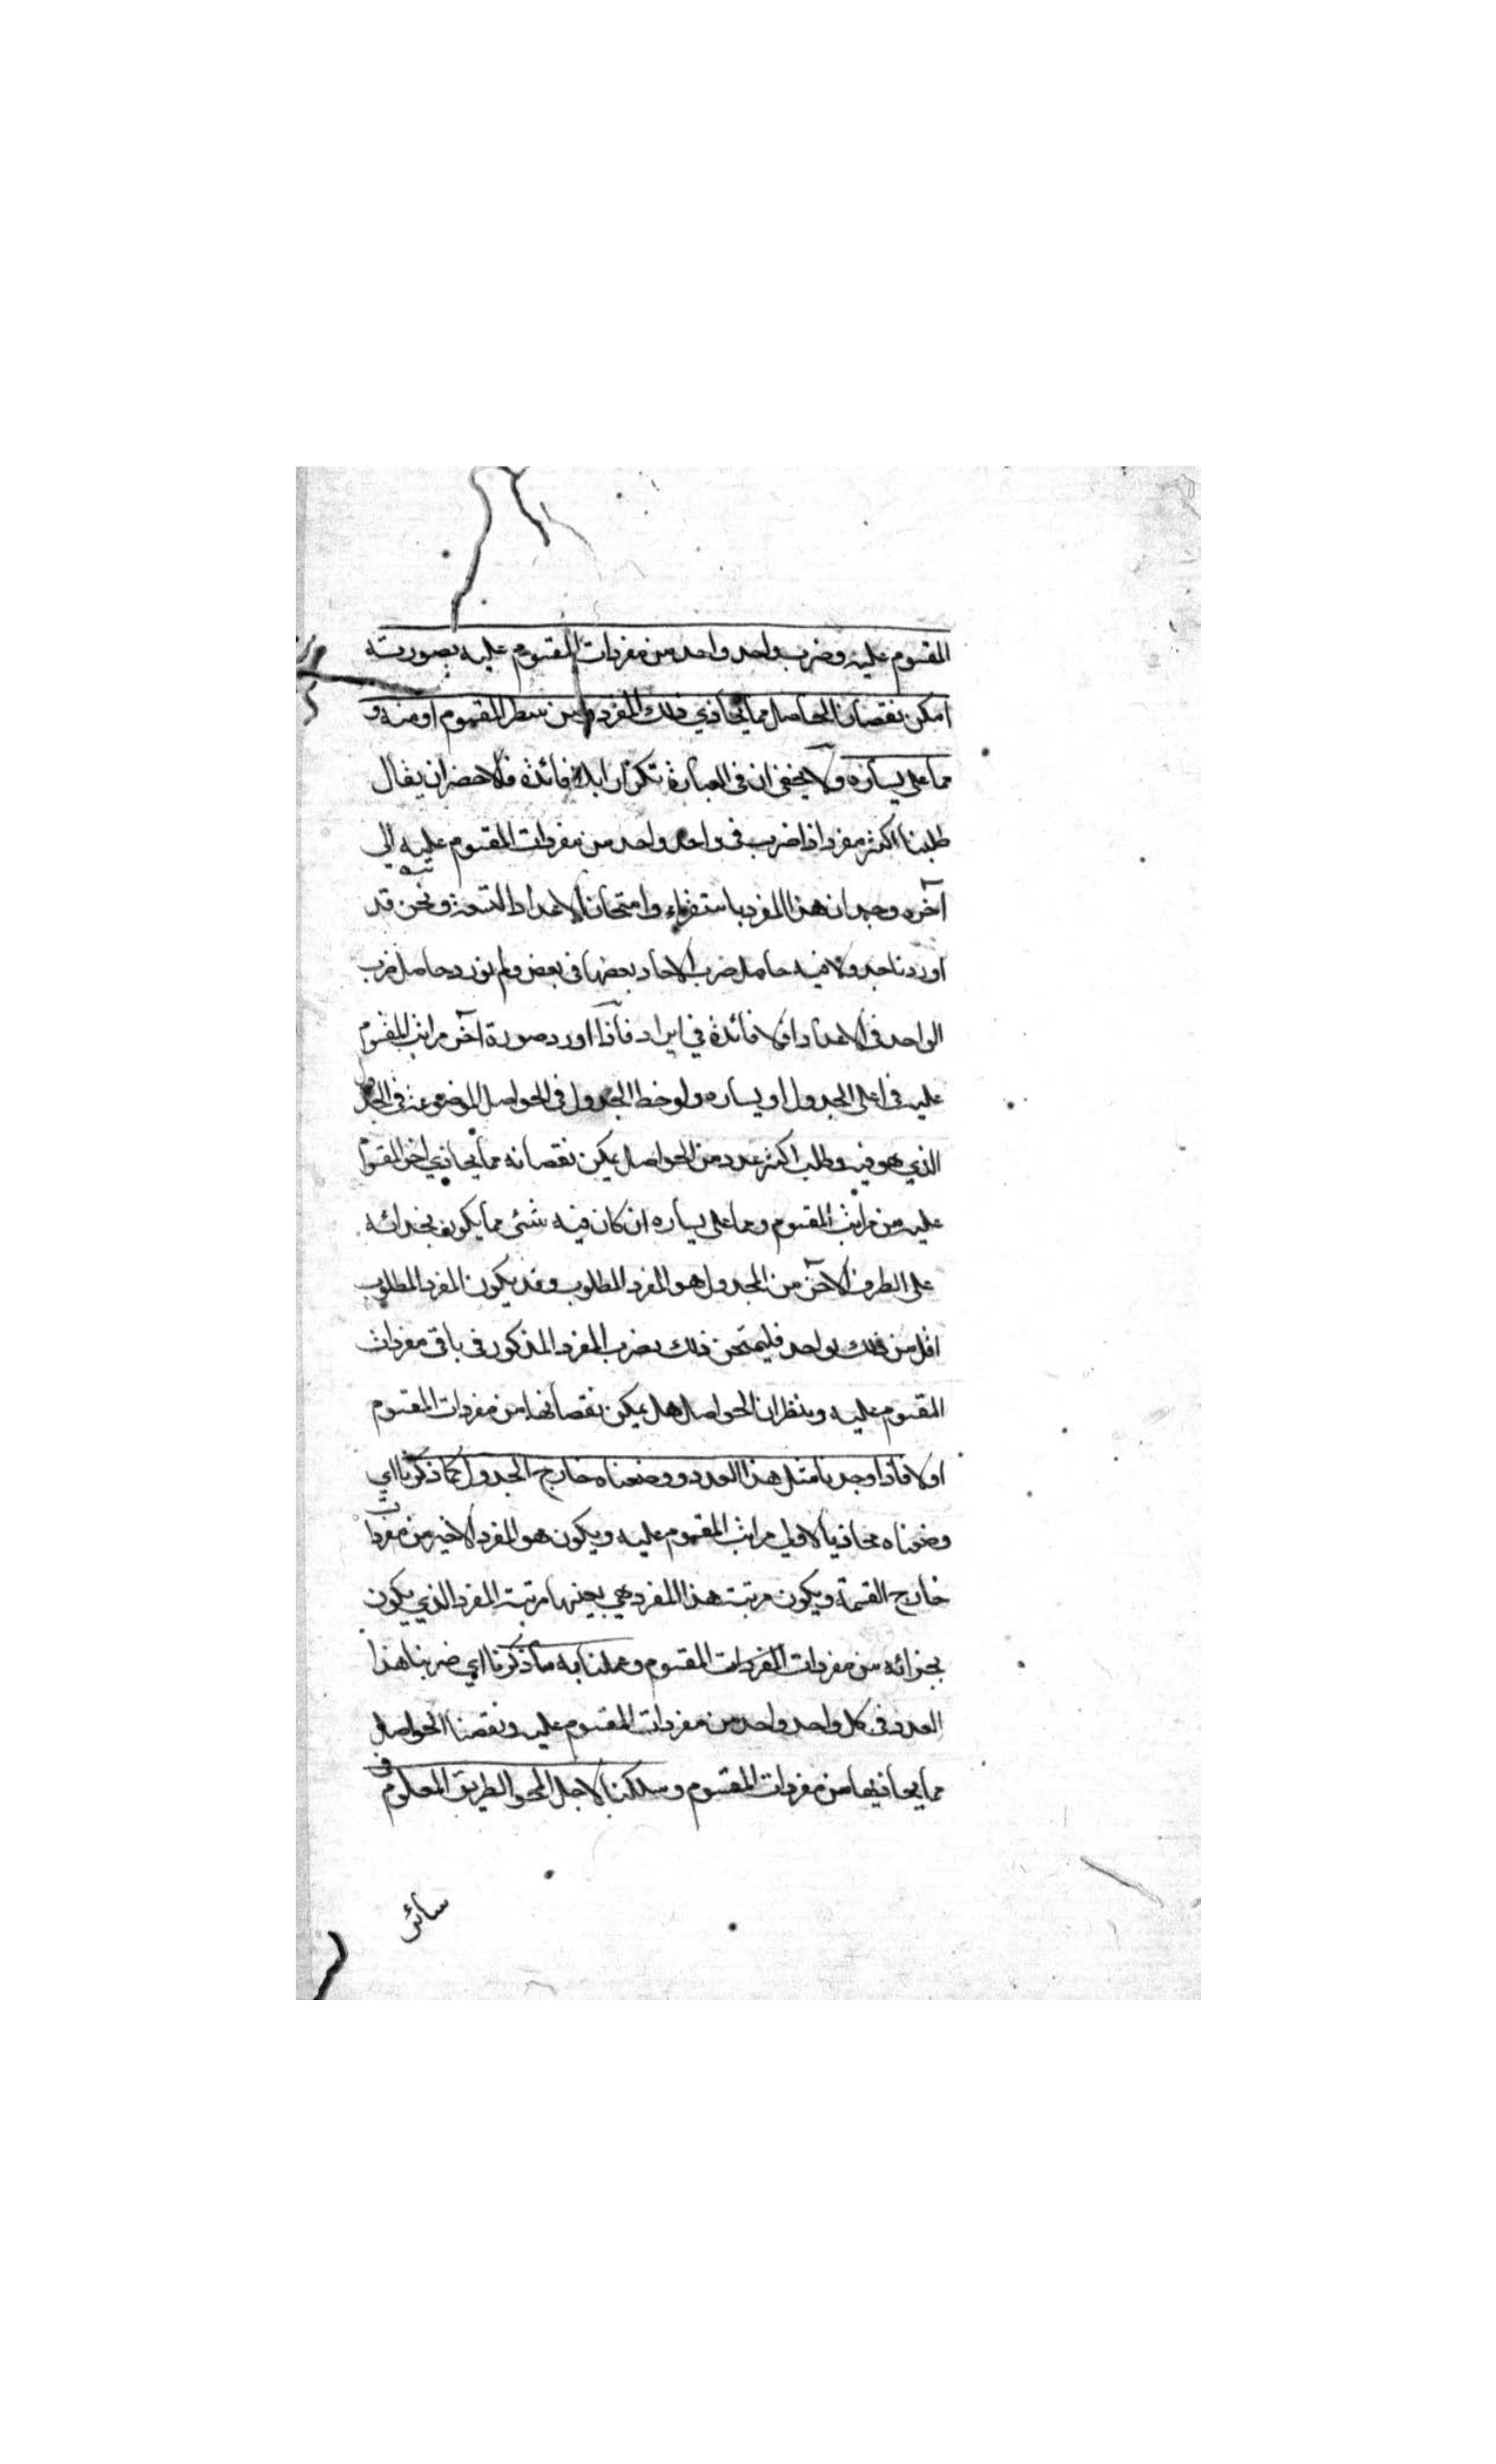 المقسوم عليه وضرب واحد واحد من مفردات المقسوم عليه بصورته
امكن نقصان الحاصل مما يحاذي ذلك المفرد من سطر المقسوم او منه و
مما على يساره ولا يخفى ان في العبارة تكرارا بلا فائدة فالاخصر ان يقال
طلبنا اكثر مفرد اذا ضرب في واحد واحد من مفردات المقسوم عليه الى
آخره وجدان هذا المفرد باستقراء وامتحان الاعداد التسعة ونحن قد
اوردنا جدولا فيه حاصل ضرب الآحاد بعضها في بعض ولم نورد حاصل ضرب
الواحد في الاعداد اذ لا فائدة في ايراده فاذا اورد صورة آخر مراتب المقسوم
عليه في اعلى الجدول او يساره ولوحظ الجدول في الحواصل الموضوعة في الجدول
الذي هو فيه وطلب اكثر عدد من الحواصل يمكن نقصانه مما يحاذي آخر المقسوم
عليه من مراتب المقسوم وما على يساره ان كان فيه شئ مما يكون بحذائه
على الطرف الآخر من الجدول هو المفرد المطلوب وقد يكون المفرد المطلوب
اقل من ذلك بواحد فليمتحن ذلك بضرب المفرد المذكور في باقي مفردات
المقسوم عليه وينظر ان الحواصل هل يمكن نقصانها من مفردات المقسوم
او لا فاذا وجدنا مثل هذا العدد ووضعناه خارج الجدول كما ذكرنا اي
وضعناه محاذيا لاولى مراتب المقسوم عليه ويكون هو المفرد الاخير من مفردات
خارج القسمة ويكون مرتبة هذا المفرد هي بعينها مرتبة المفرد الذي يكون
بحذائه من مفردات المفردات المقسوم وعملنا به ما ذكرنا اي ضربنا هذا
العدد في كل واحد واحد من مفردات المقسوم عليه ونقصنا الحواصل
مما يحاذيها من مفردات المقسوم وسلكنا لاجل المحو الطريق المعلوم في
سائر